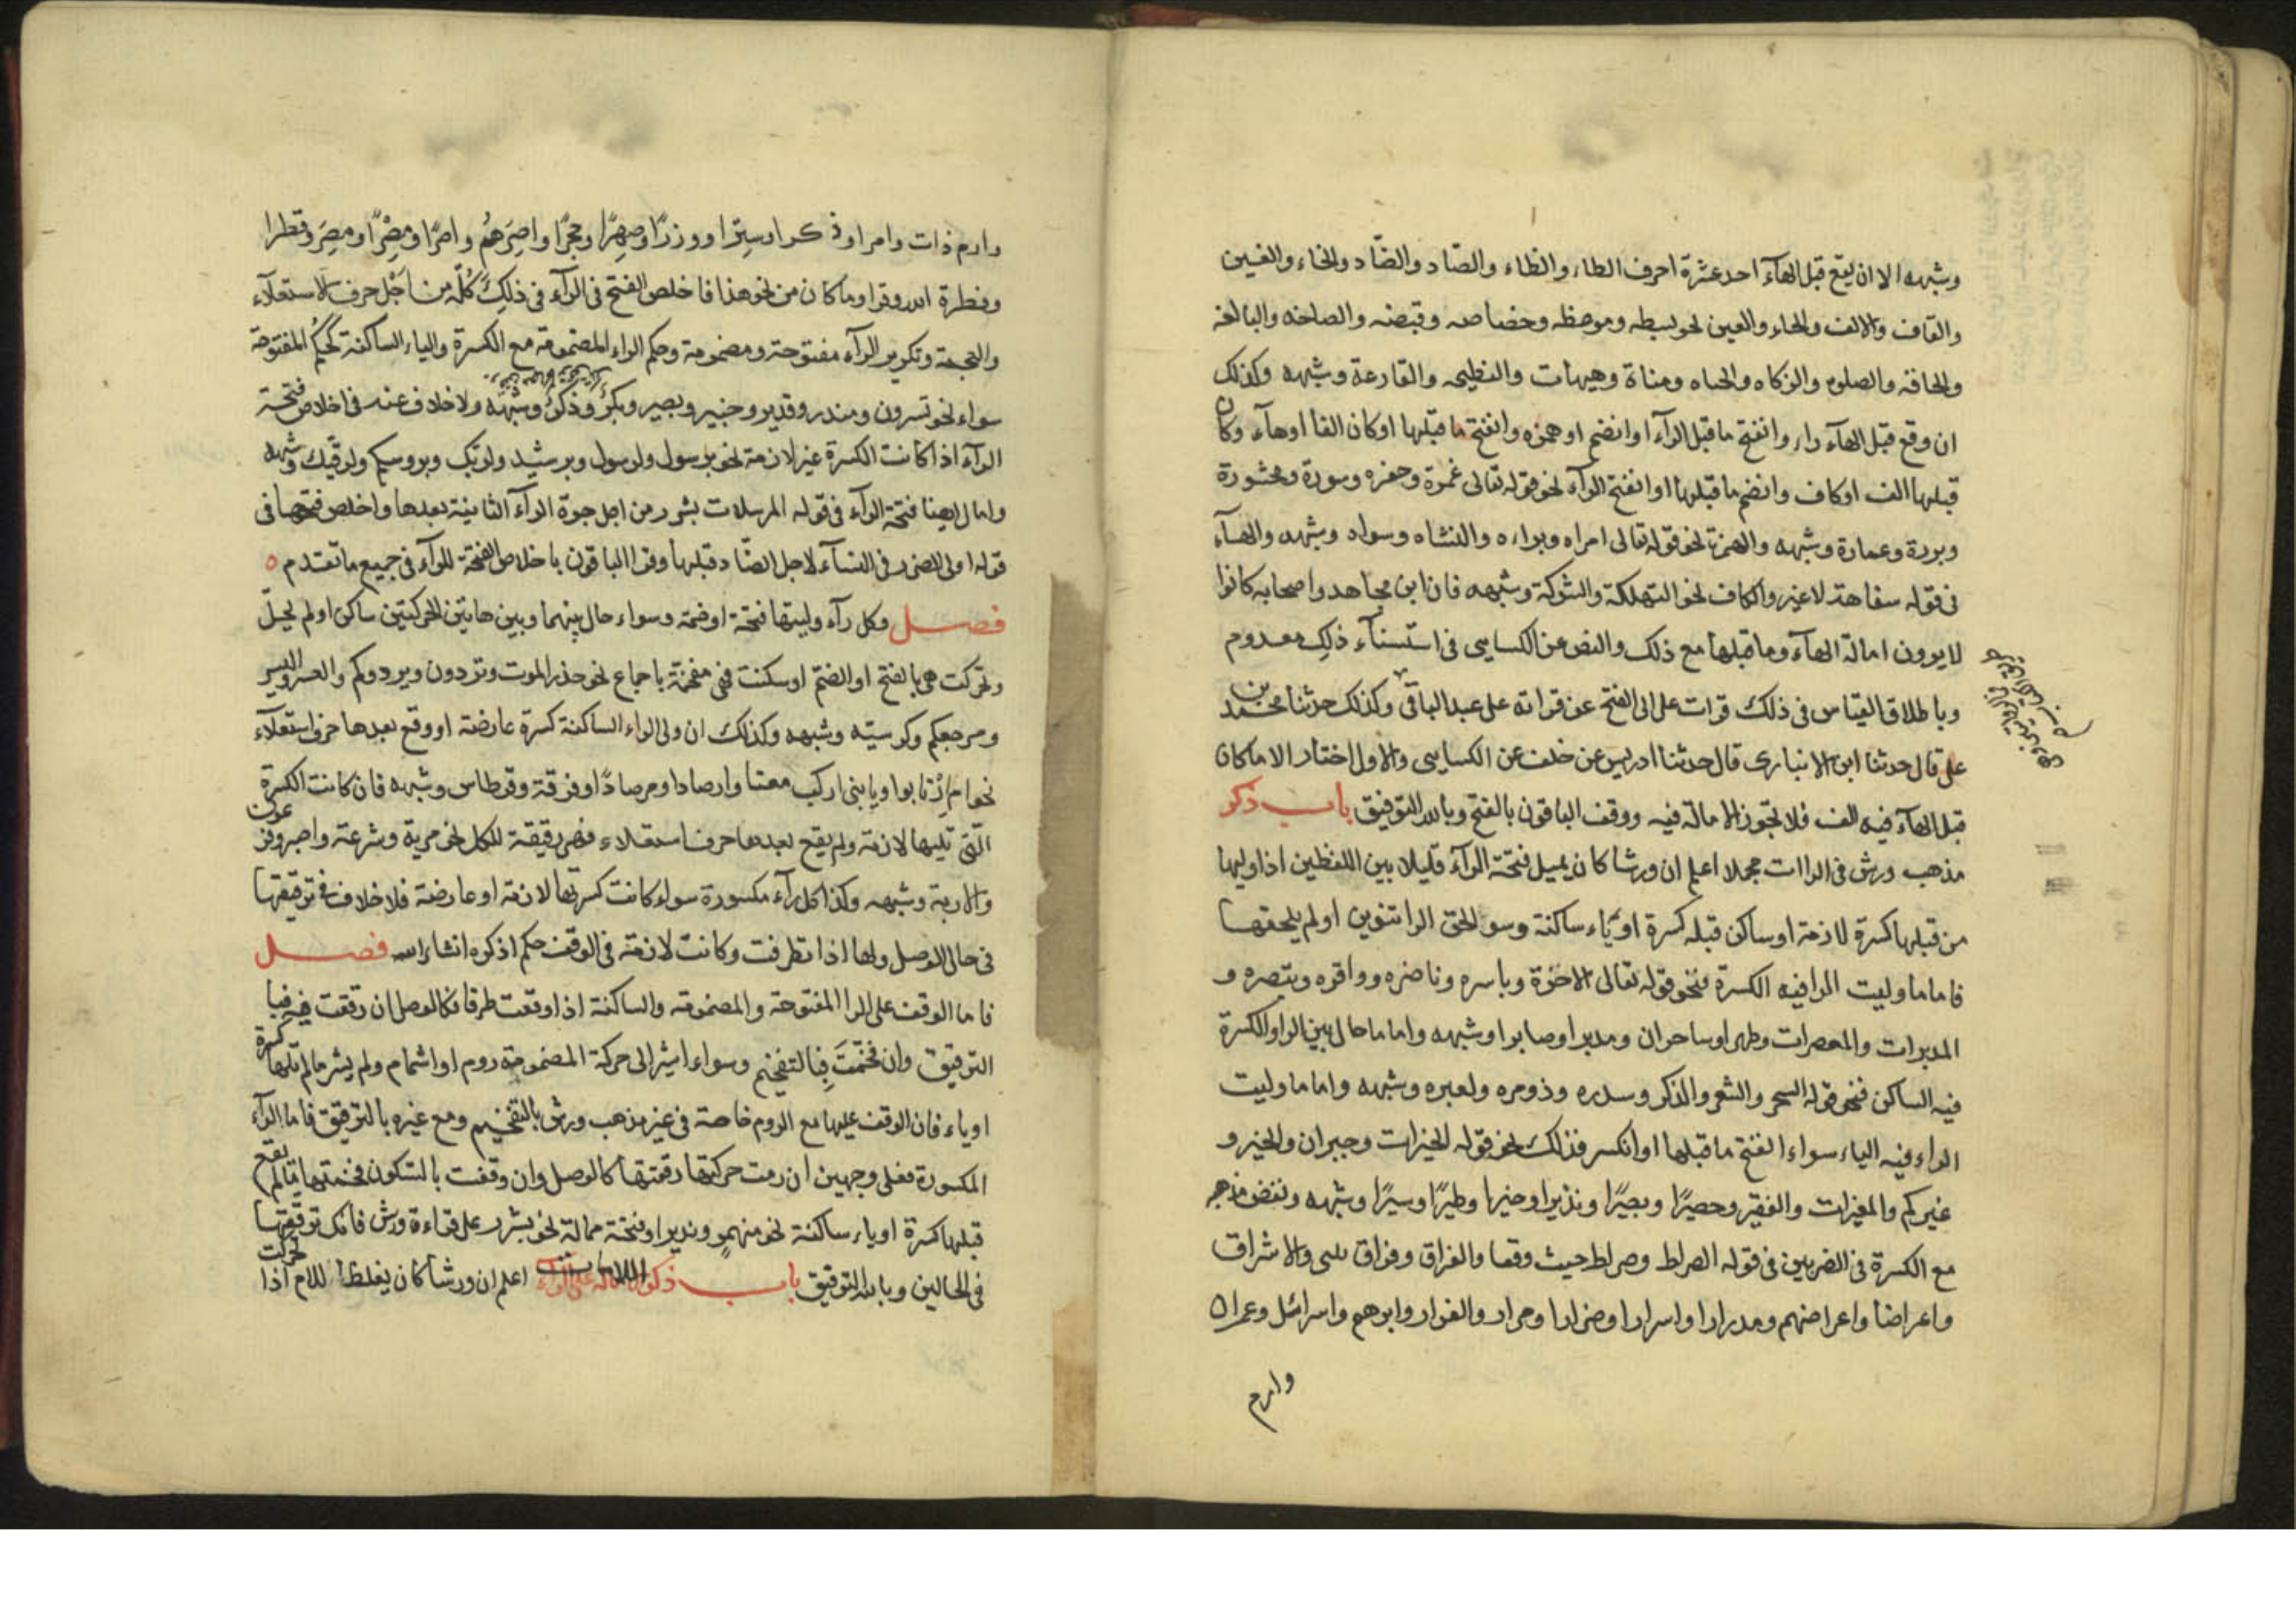 وشبهه الا ان يقع قبل الهآء احد عشرة احرف الطاء والظاء والصاد والضّاد والخاء والغين
والقاف والالف والحاء والعين نحو بسطه وموعظه وخصاصه وقبضه والصاخه والبالغه
والحاقه والصلوه والزكاه والحياه ومناة وهيهات والنطيحه والقارعة وشبهه وكذلك
ان وقع قبل الهآء راء وانفتح ما قبل الرآء او انضم او همزه وانفتح ما قبلها او كان الفا او هآء وكان
قبلها الف او كاف وانضم ما قبلها او انفتح الرآء نحو قوله تعالى غمرة وحفره وسورة ومحشورة
وبررة وعمارة وشبهه والهمزة نحو قوله تعالى امراه وبراءه والنشاه وسواه وشبهه والهآء
فى قوله سفاهة لاغير والكاف نحو التهلكة والشوكة وشبهه فان ابن مجاهد واصحابه كانوا
لا يرون امالة الهآء وما قبلها مع ذلك والنص عن الكسايى فى استسنآء ذلك معدوم
وباطلاق القياس فى ذلك قرات على ابى الفتح عن قراته على عبد الباقى وكذلك حدثنا محمد بن
على قال حدثنا ابن الانبارى قال حدثنا ادريس عن خلف عن الكسايى والاول اختار الا ما كان
قبل الهآء فيه الف فلا تجوز الامالة فيه ووقف الباقون بالفتح وبالله التوفيق باب ذكر
مذهب ورش فى الراات مجملا اعلم ان ورشا كان يميل فتحة الرآء قليلا بين اللفظين اذا وليها
من قبلها كسرة لازمة او ساكن قبله كسرة او ياء ساكنة وسو الحق الرا تنوين او لم يلحقها
فاما ما وليت الرا فيه الكسرة فنحو قوله تعالى الاخرة وباسره وناضره وواقره وتبصره و
المدبرات والمعصرات وطهرا وساحران ومدبرا وصابرا وشبهه واما ما حال بين الراو الكسرة
فيه الساكن فنحو قوله السحر والشعر والذكر وسدره وذو مره ولعبره وشبهه واما ما وليت
الراء فيه الياء سواء انفتح ما قبلها او انكسر فذلك نحو قوله الخيرات وحيران والخير و
غيركم والمغيرات والفقير وحصيرًا وبصيرًا ونذيرا وخيرا وطيرًا وسيرًا وشبهه ونقض مذهبه
مع الكسرة فى الضربين فى قوله الصراط وصراط حيث وقعا والفراق وفراق بينى والاشراق
واعراضا واعراضهم ومدرارا واسرارا وضرارا وفرارا والفرار وابرهم واسرائل وعمران
وارم
وارم ذات وامرا وذكرا وسِترا ووزرًا وصِهرًا وحِجرًا واصِرَهُم واصرًا ومِصْرًا ومِصرَ وقطرا
وفطرة الله ووقرا وما كان من نحو هذا فاخلص الفتح فى الرآء فى ذلِكَ كُلّه من اَجْل حرف الاستعلآء
والعجمة وتكرير الرآء مفتوحة ومضمومة وحكم الراء المضمومة مع الكسرة والياء الساكنة كحُكم المفتوحة
سواء نحو تسرون ومنذر وقدير وخبير وبصير وبِكرٌ وذكرٌ وشبهه ولا خلاف عنه فى اخلاص فتحة
الرآء اذا كانت الكسرة غير لازمة نحو برسول ولرسول وبرشيد ولربّك وبروسكم ولرقيك وشبهه
وامال ايضا فتحة الرآء فى قوله المرسلات بشرر من اجل جرة الرآء الثانية بعدها واخلص فتحها فى
قوله اولى الضرر فى النسآء لاجل الضّاد قبلها وقرا الباقون باخلاص الفتحة للرآء فى جميع ما تقدم ٥
فصل وكل رآء وليتها فتحة او ضمة وسواء حال بينهما وبين هاتين الحركتين ساكن او لم يحُلّ
وتحركت هى بالفتح او الضم او سكنت فهى مفخمة باجماع نحو حذر الموت وتردون ويردوكم والعسر واليسر
ومرجعكم وكرسيّه وشبهه وكذلك ان ولى الراء الساكنة كسرة عارضة او وقع بعدها حرف استعلآء
نحو ام ارْتابوا ويا بنى اركب معنا وارصادا ومرصادًا وفرقة وقرطاس وشبهه فان كانت الكسرة
الّتى تليها لازمة ولم يقع بعدها حرف استعلاء فهى رقيقة للكل نحو مرية وشرعة واصبر وفرعون
والاربة وشبهه وكذا كل رآء مكسورة سواء كانت كسرتها لازمة او عارضة فلا خلاف فى ترقيقها
فى حال الوصل ولها اذا تطرفت وكانت لازمة فى الوقف حكم اذكره انشا الله فصل
فاما الوقف على الرا المفتوحة والمضمومة والساكنة اذا وقعت طرفا فكالوصل ان رققت فيه فبا
الترقيق وان فخّمتَ فبِالتفخيم وسواء اشير الى حركة المضمومة بروم او اشمام ولم يشر ما لم تلها كسرة
او ياء فان الوقف عليها مع الروم خاصة فى غير مذهب ورش بالتفخيم ومع غيره بالترقيق فاما الرآء
المكسورة فعلى وجهين ان رمت حركتها رققتها كالوصل وان وقفت بالسكون فخمتها ما لم يقع
قبلها كسرة او ياء ساكنة نحو منهمرٍ ونذير او فتحة ممالة نحو بشرر على قراءة ورش فانك ترققها
فى الحالين وبالله التوفيق باب ذكر اللامات اعلم ان ورشا كان يغلظ اللام اذا تحركت